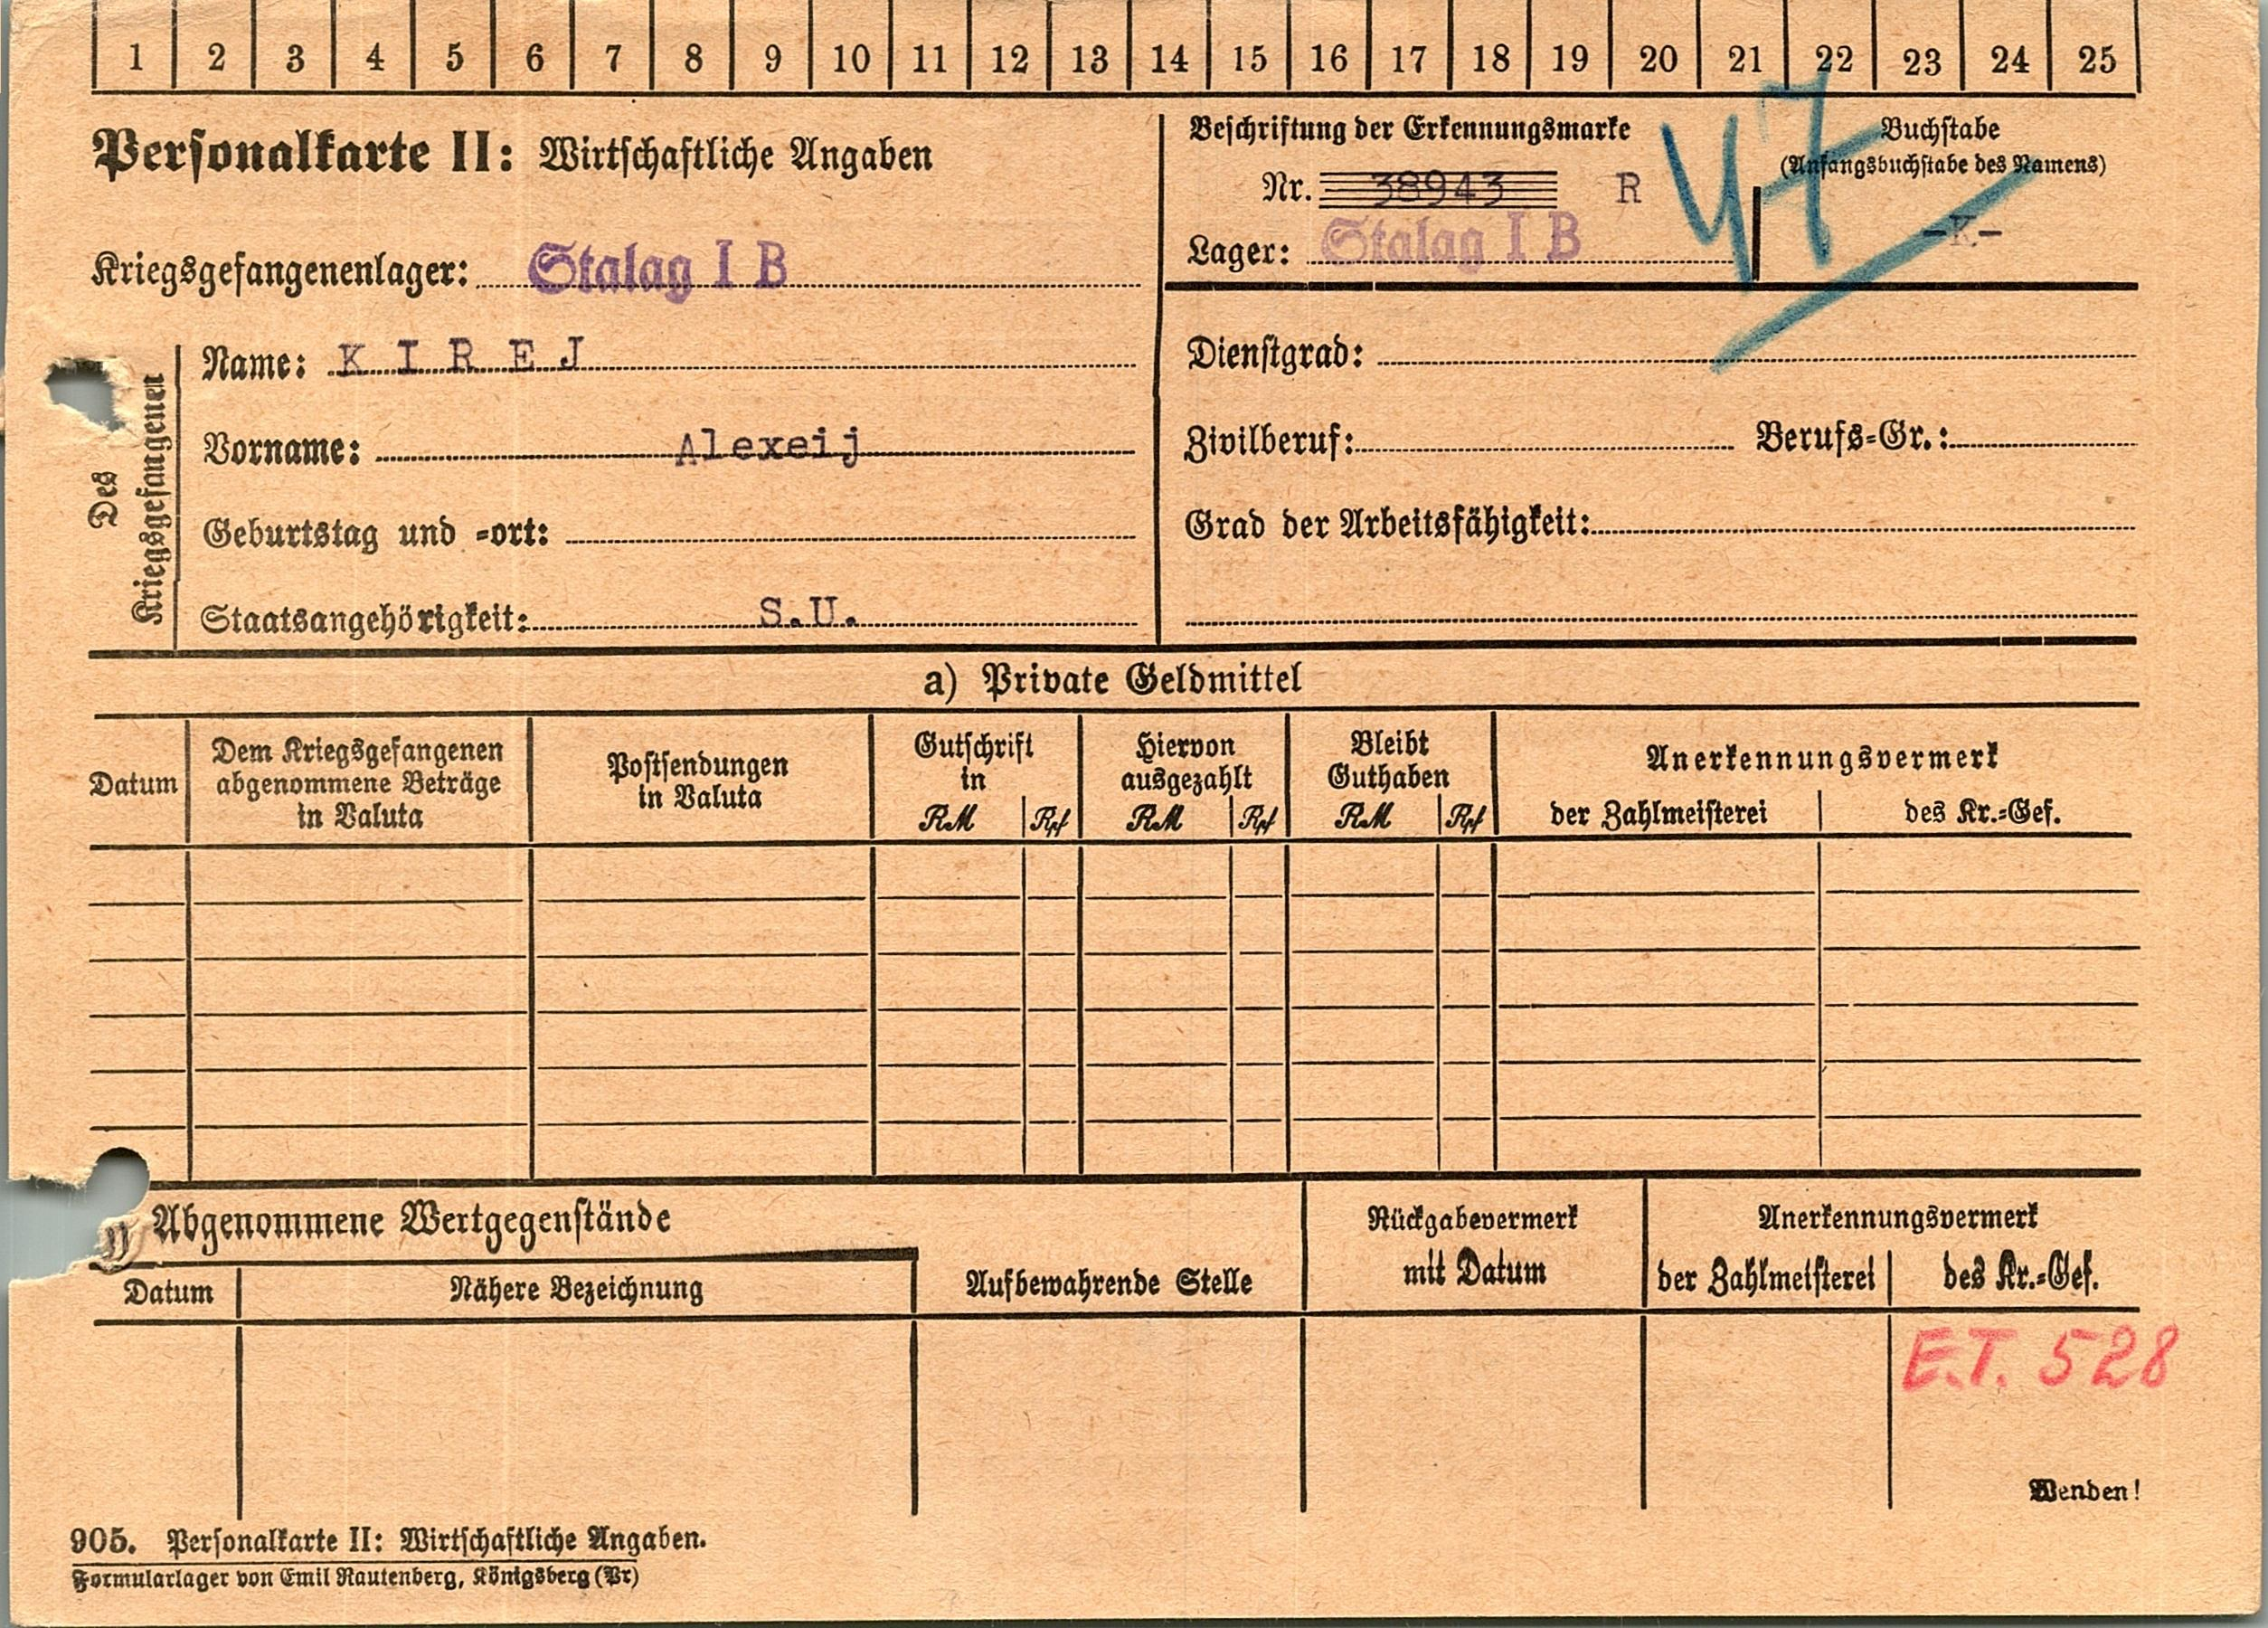 1 2 3 4 5 6 7 8 9 10 11 12 13 14 15 16 17 18 19 20 21 22 23 24 25
Personalkarte II: Wirtschaftliche Angaben
Kriegsgefangenenlager: Stalag I B
Des Kriegsgefangenen
Name: K I R E J
Vorname: Alexeij
Geburtstag und =ort:
Staatsangehörigkeit: S.U.
Beschriftung der Erkennungsmarke
Nr. 38943 R
Lager: Stalag I B
47
Buchstabe
(Anfangsbuchstabe des Namens)
-K-
Dienstgrad:
Zivilberuf: Berufs=Gr.:
Grad der Arbeitsfähigkeit:
a) Private Geldmittel
Datum
Dem Kriegsgefangenen
abgenommene Beträge
in Valuta
Postsendungen
in Valuta
Gutschrift
in
RM Rpf
Hiervon
ausgezahlt
RM Rpf
Bleibt
Guthaben
RM Rpf
Anerkennungsvermerk
der Zahlmeisterei des Kr.=Gef.
Abgenommene Wertgegenstände
Datum Nähere Bezeichnung
Aufbewahrende Stelle
Rückgabevermerk
mit Datum
Anerkennungsvermerk
der Zahlmeisterei des Kr.=Gef.
E.T. 528
Wenden!
905. Personalkarte II: Wirtschaftliche Angaben.
Formularlager von Emil Rautenberg, Königsberg (Pr)